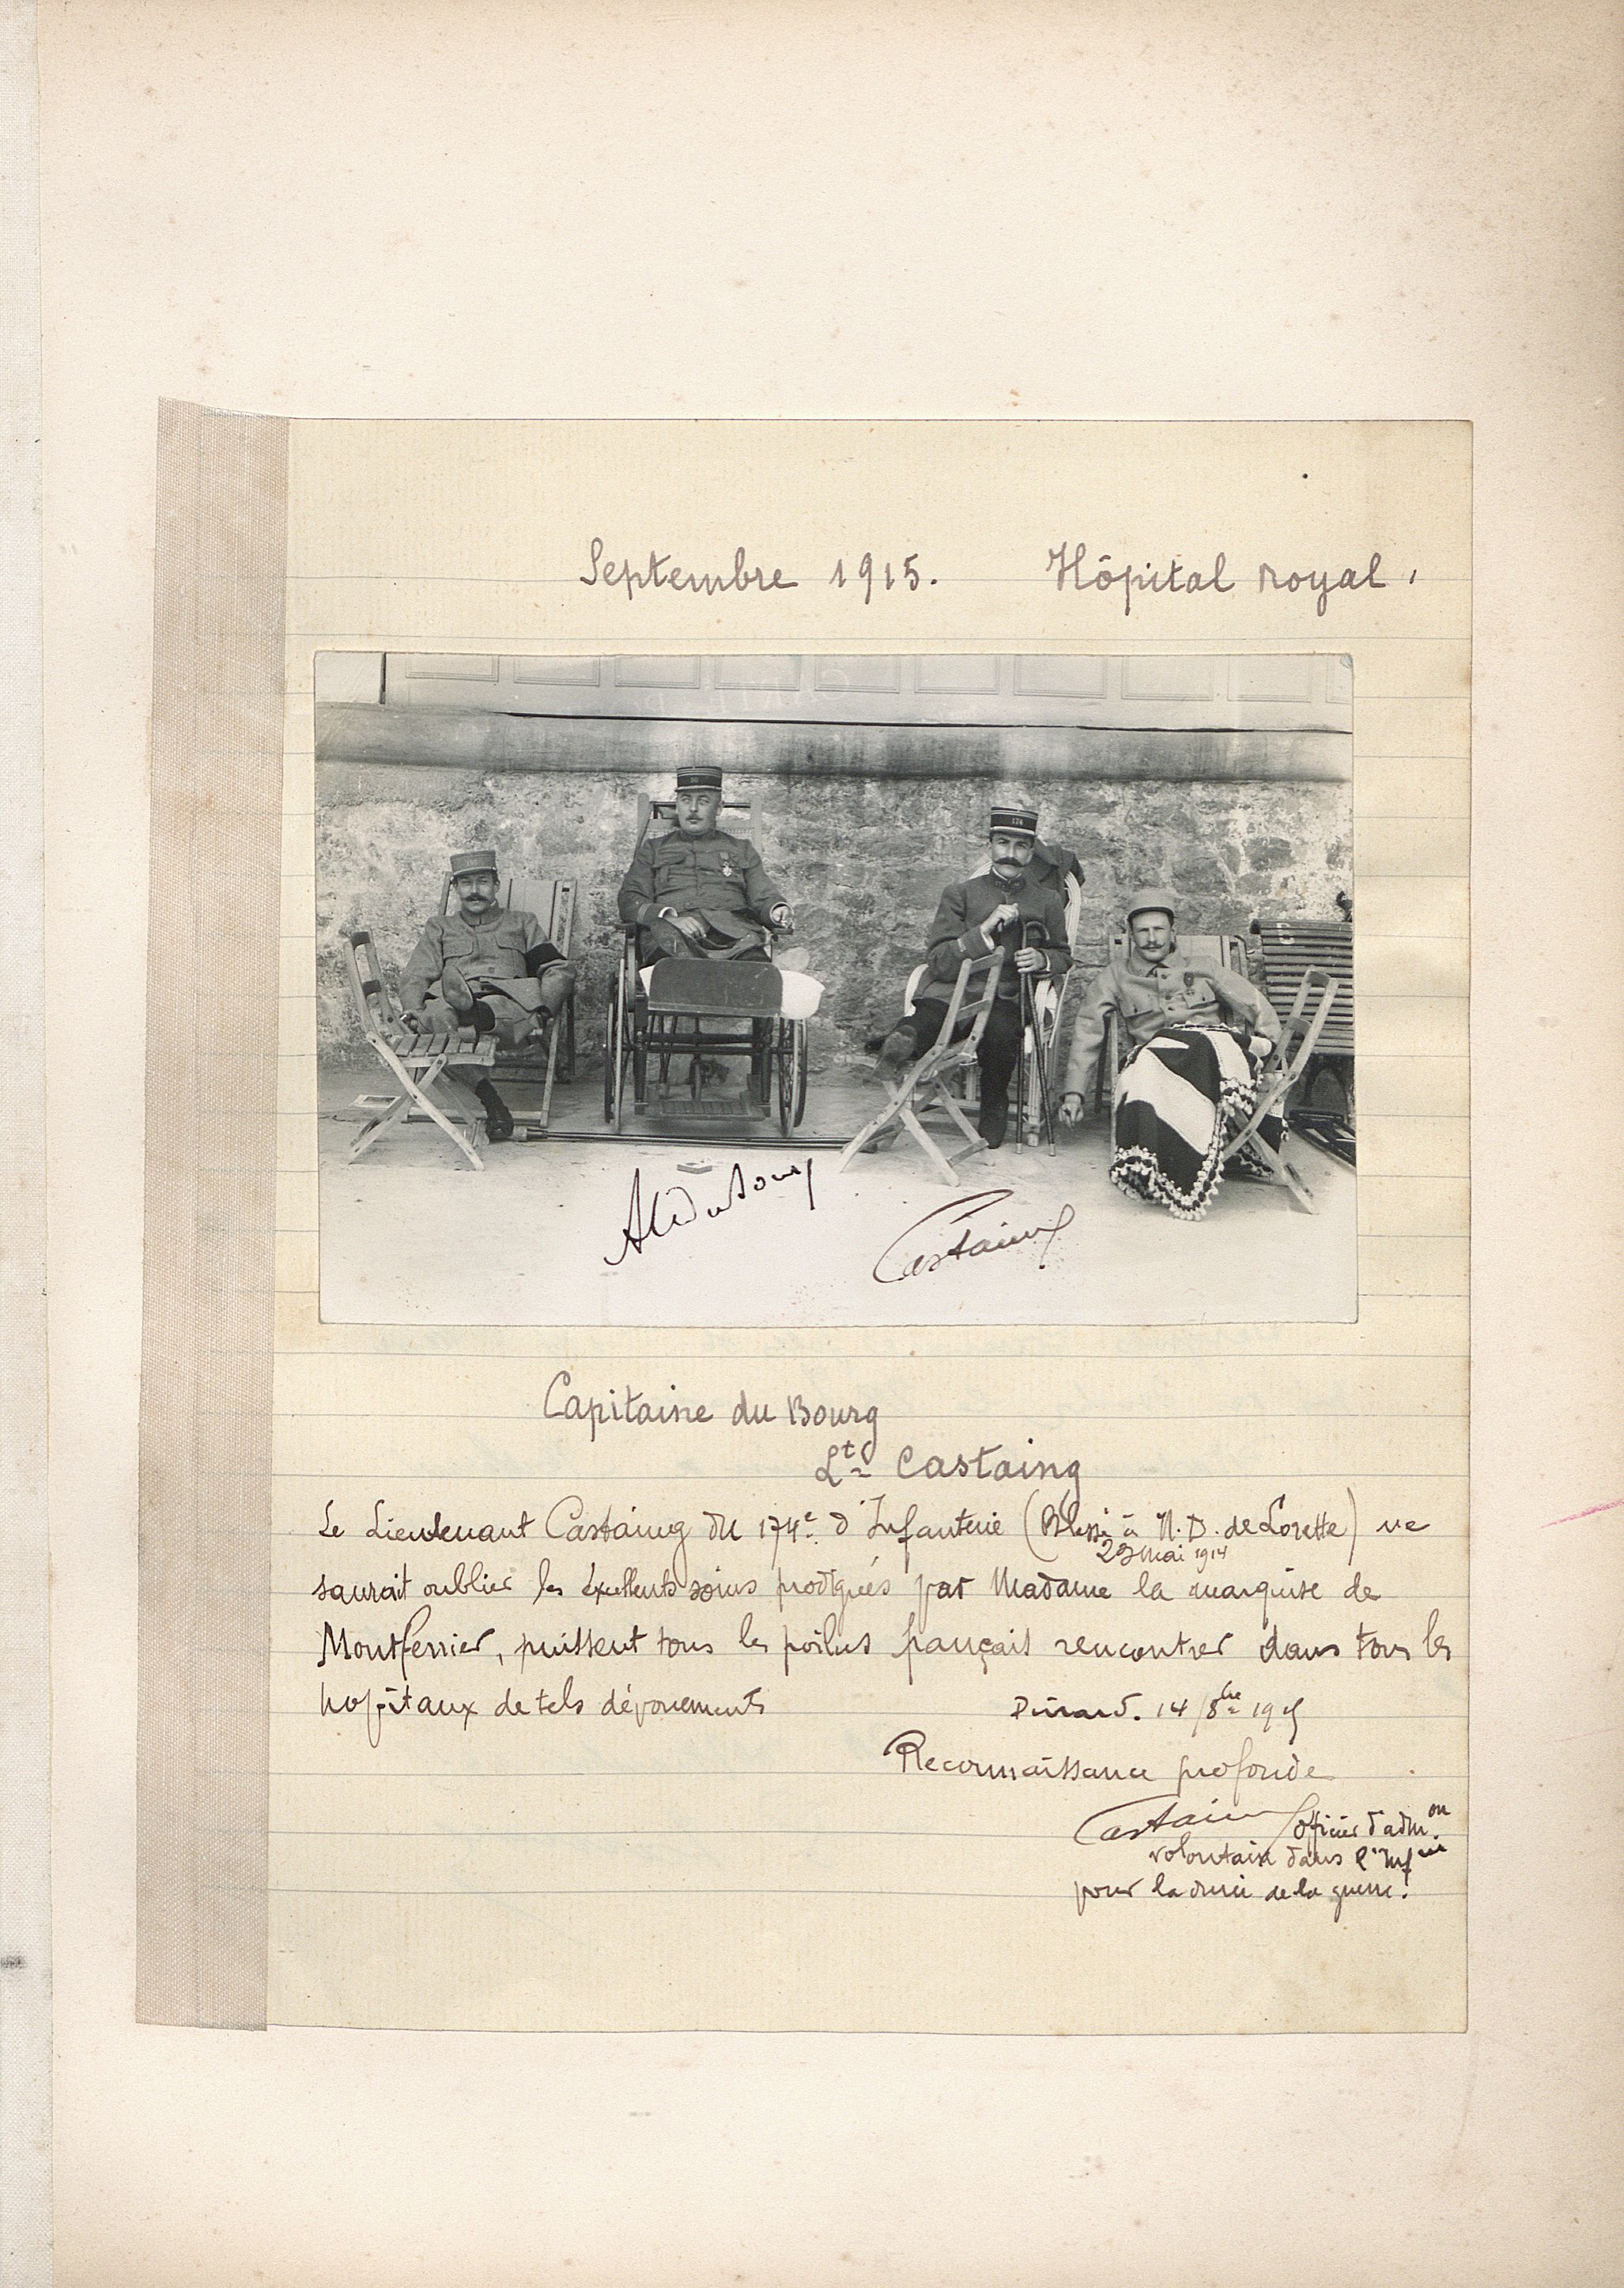 Septembre 1915. Hôpital royal.
174
Castaing
Capitaine du Bourg
Lt Castaing
Le Lieutenant Castaing du 174e d'Infanterie (Blessé à N. D. de Lorette) ne
29 mai 1914
saurait oublier les excellents soins prodigués par Madame la marquise de
Montferrier, puissent tous les poilus français rencontrer dans tous les
hôpitaux de tels dévouements
Dinard. 14/8bre 1915
Reconnaissance profonde
Castaing officier d'admon
volontaire dans l'Infrie
pour la durée de la guerre.